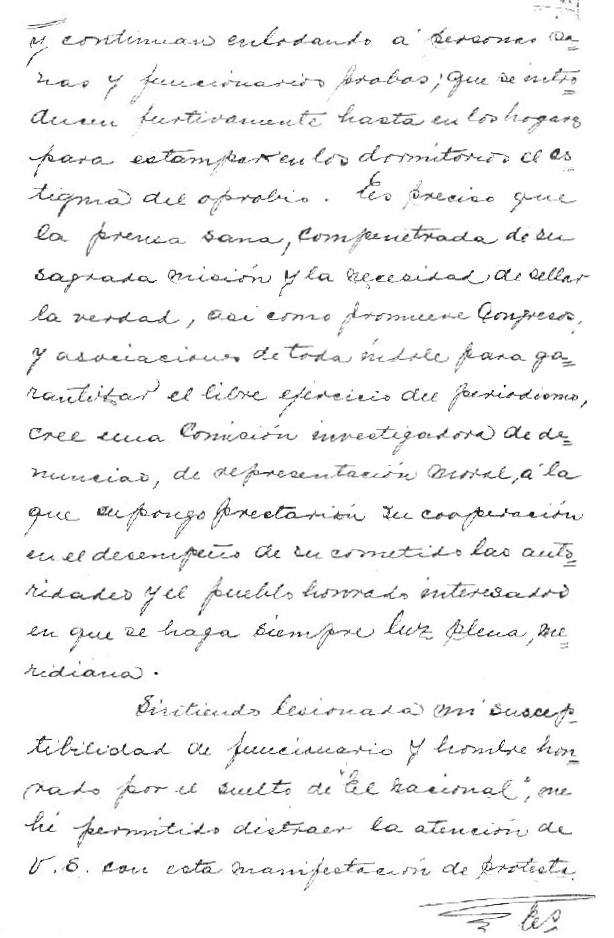 y continuan enlodando á personas sa=
nas y funcionarios probos; que se intro=
ducen furtivamente hasta en los hogares
para estampar en los dormitorios el es=
tigma del oprobio. Es preciso que
la prensa sana, compenetrada de su
sagrada misión y la necesidad de sellar
la verdad, asi como promueve Congresos,
y asociaciones de toda indole para ga=
rantizar el libre ejercicio del periodismo,
cree una Comisión investigadora de de=
nuncias, de representación moral, á la
que supongo prestarian su cooperación
en el desempeño de su cometido las auto=
ridades y el pueblo honrado interesados
en que se haga siempre luz plena, me=
ridiana.
Sintiendo lesionada mi suscep=
tibilidad de funcionario y hombre hon=
rado por el suelto de "El Nacional", me
hé permitido distraer la atención de
V. S. con esta manifestación de protesta.
Es